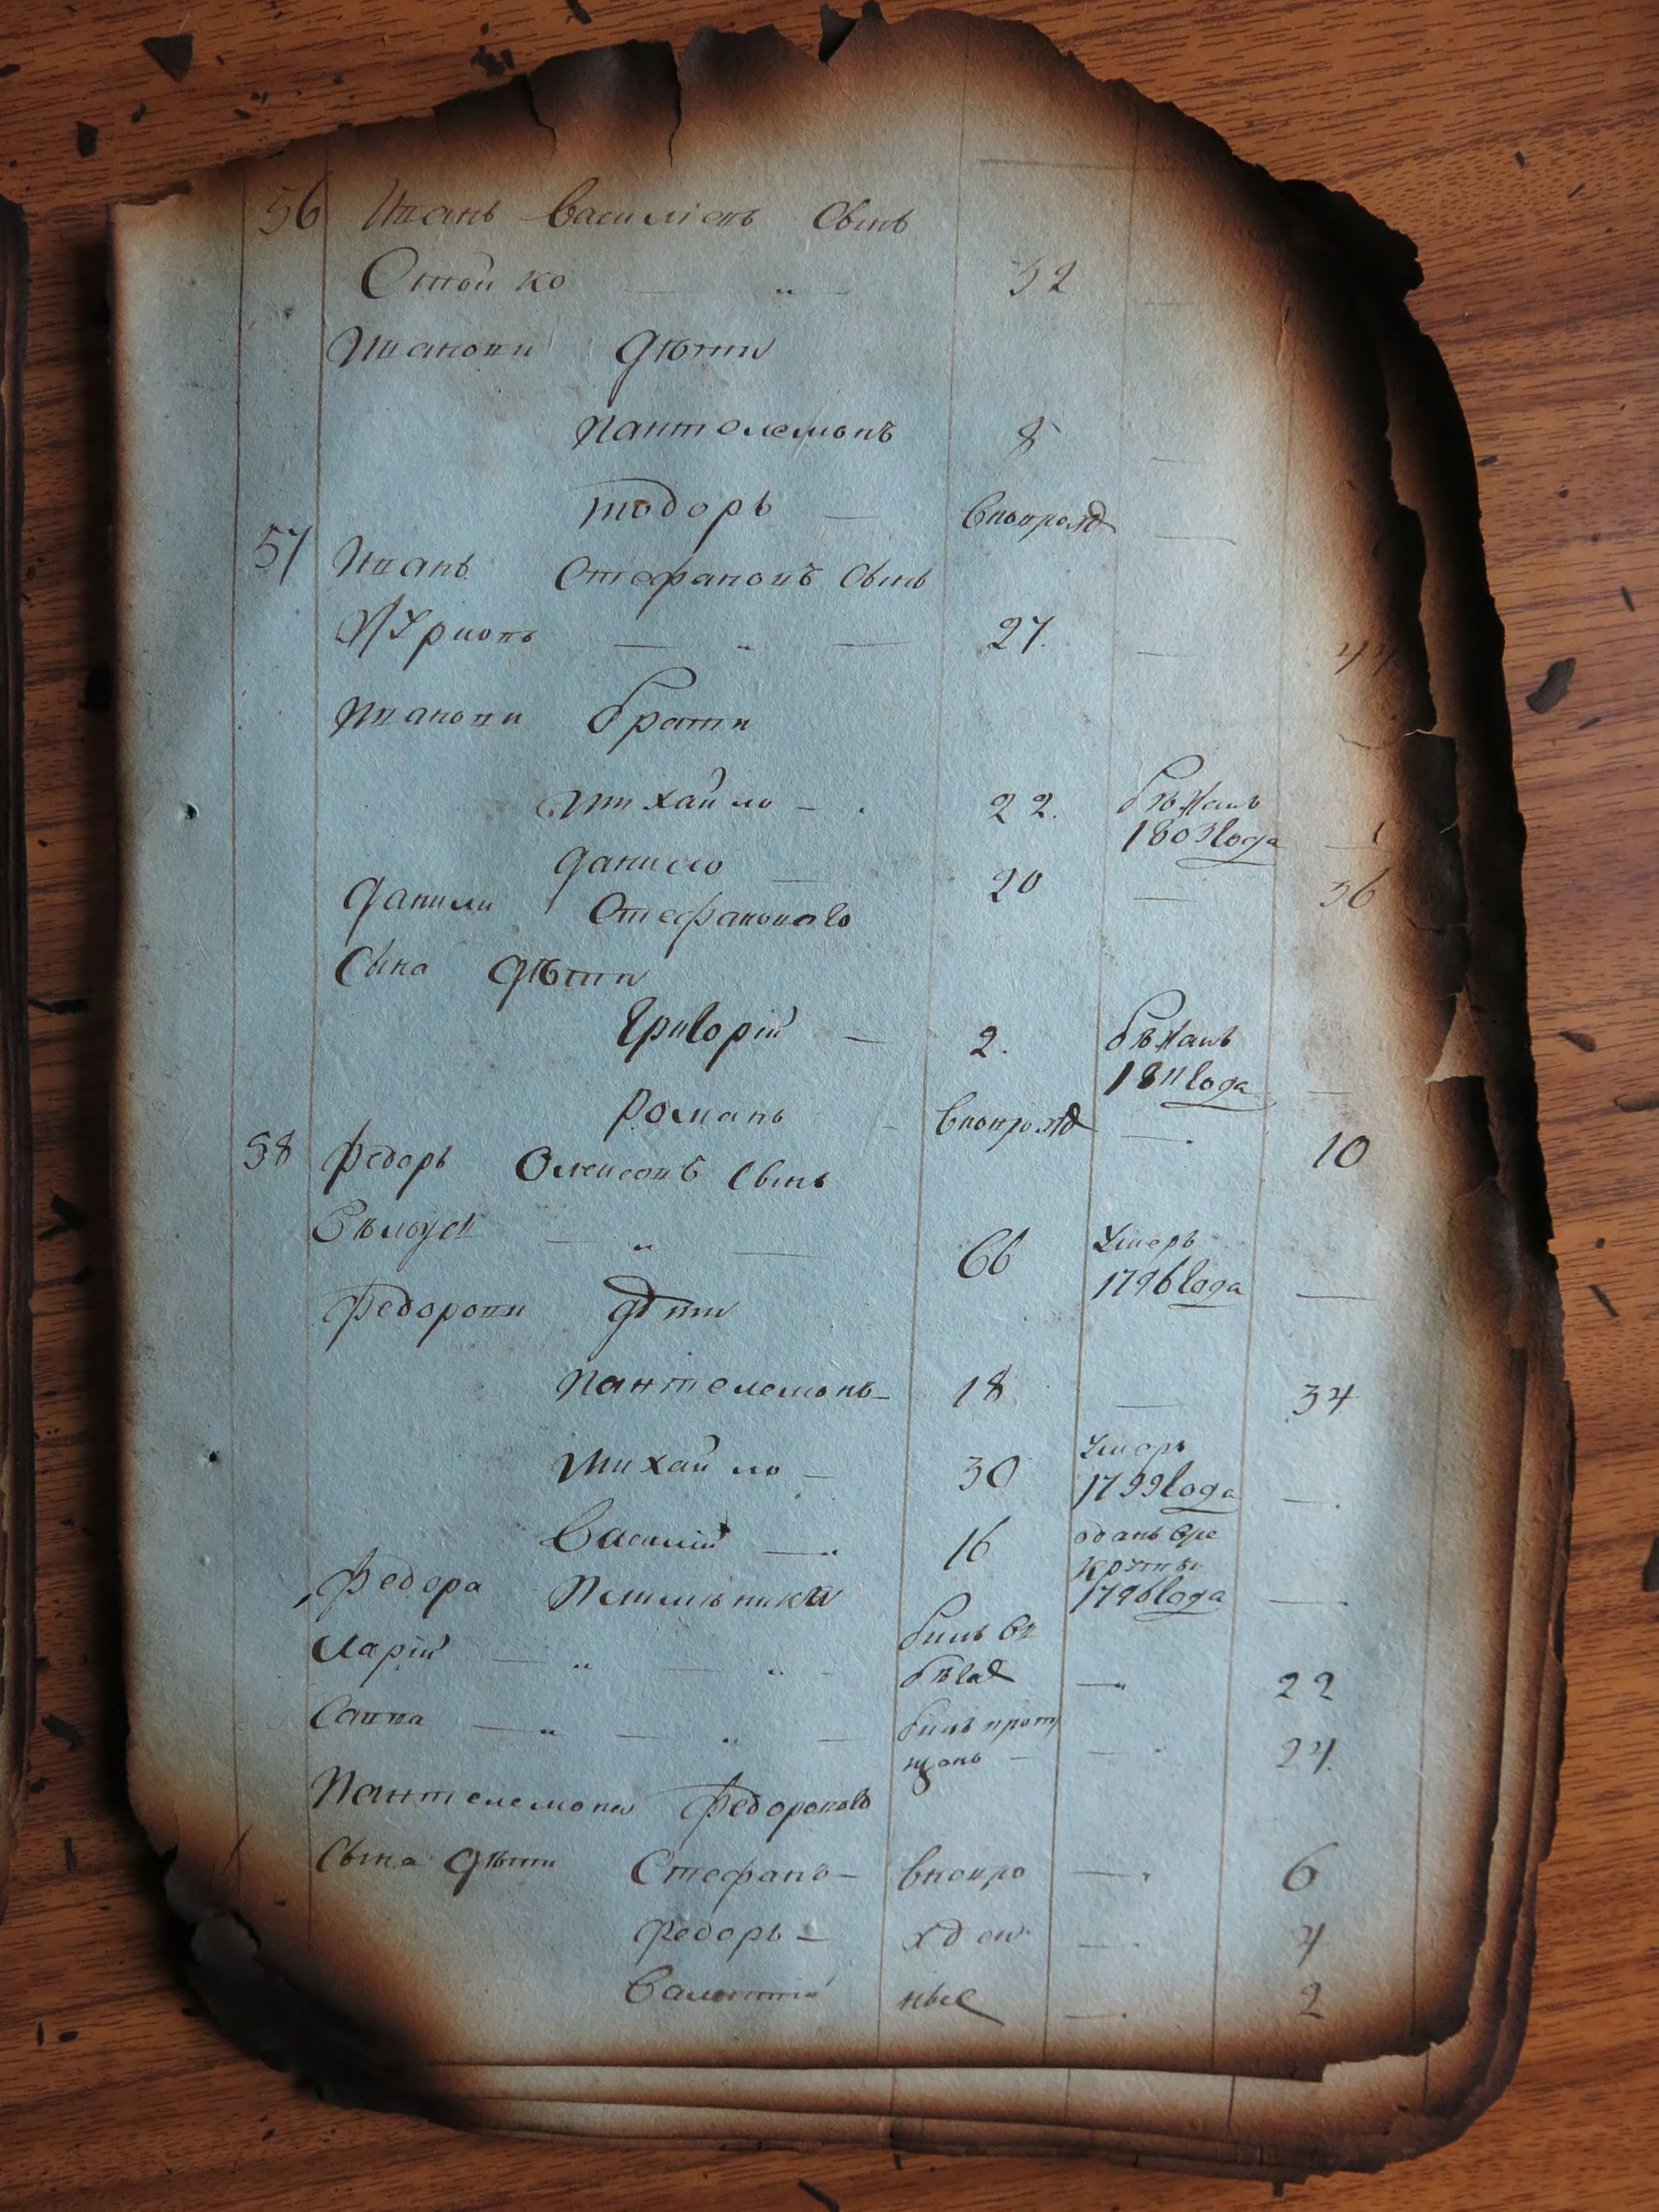 56 Иванъ Василіевъ Сынъ
Стойко — „ — 32 —
Ивановы дѣти
Пантелемонъ 8 —
тодоръ — вновирожд —
57 Иванъ Стефановъ Сынъ
— „ — 27. — 44
Ивановы брати
Михайло — . 22. бѣжалъ
1803 года
Данило — 20 — 36
Данили Стефановаго
Сына дѣти
Григорій — 2. бѣжалъ
1811 года —
Романъ - вновирожд — . 10
58 Федоръ Олексеевъ Сынъ
Бѣлоусъ — „ — 66 умеръ
1796 года —
Федоровы дѣти
Пантелемонъ — 18 — 34
Михайло — 30 умеръ
1799 года — .
Василій — „ 16 оданъ вре
круты
1796 года — .
Федора Пчильники
Ларій — „ — „ - билъ въ
бѣгах — „ 22
Савва — „ — „ — билъ проп
щенъ — — . 24.
Пантелемона Федорового
Сына дѣти Стефанъ — вновро — . 6
Федоръ — жден — . 4
ные — . 2